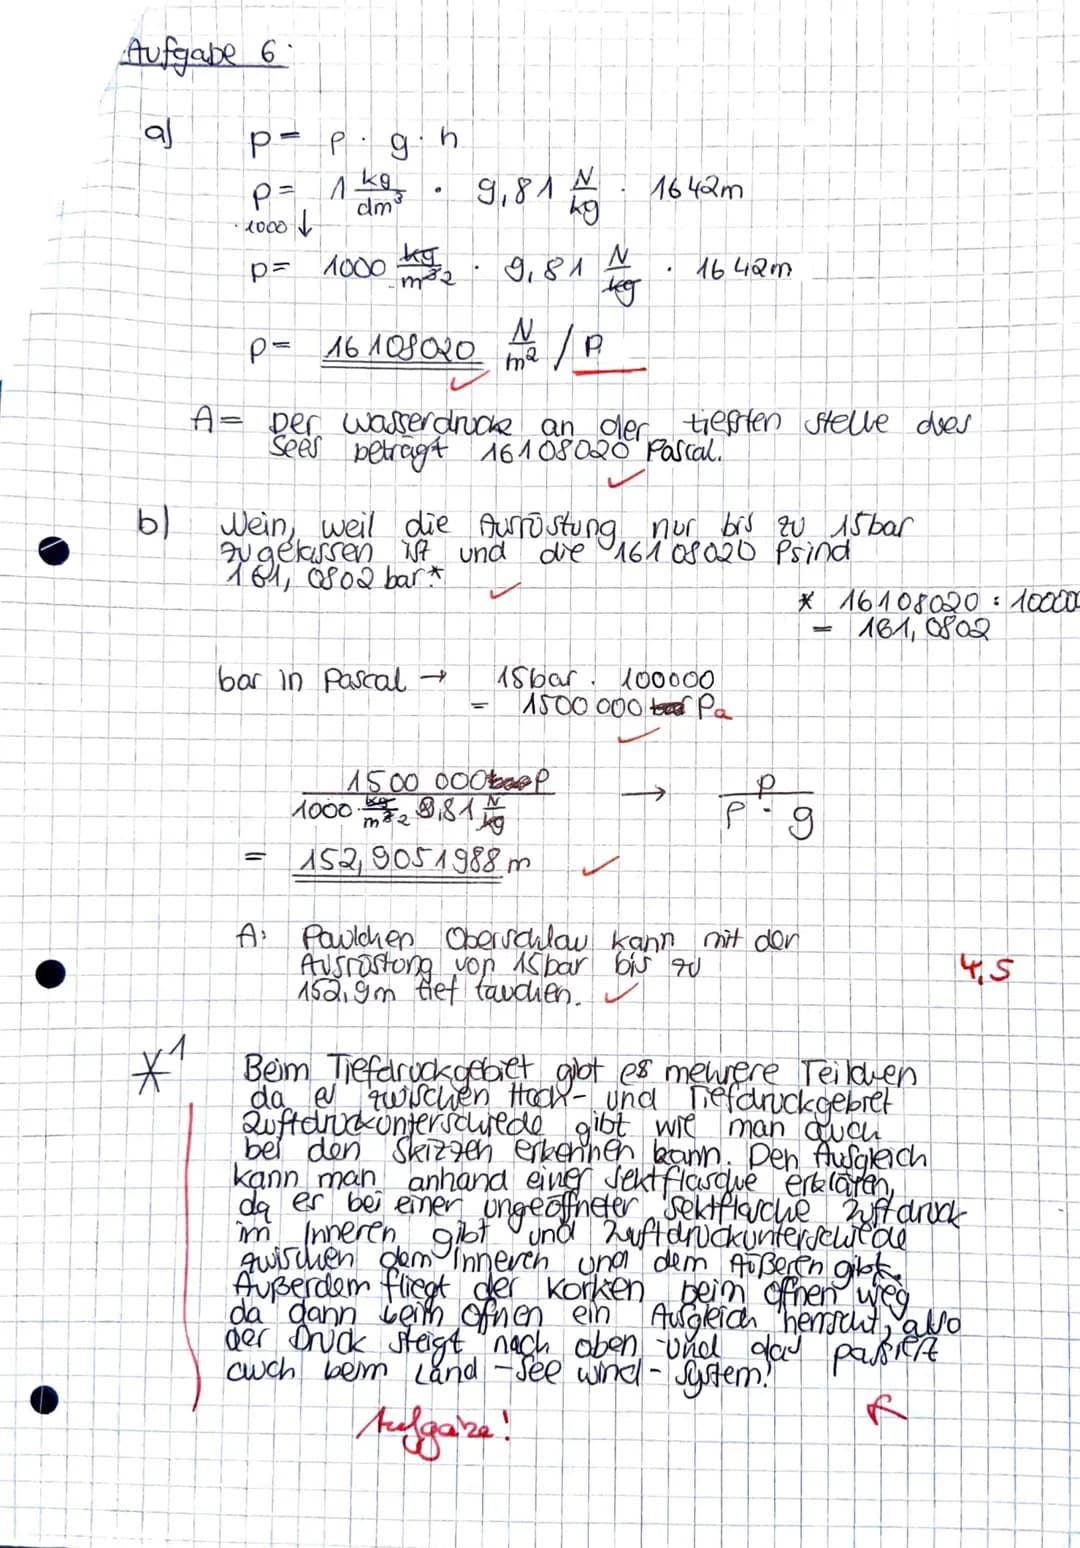 Aufgabe 6:
a) p = ρ · g · h
p = 1 kg/dm³ · 9,81 N/kg · 1642m
·1000 ↓
p = 1000 kg/m³2 · 9,81 N/kg · 1642m
p = 16108020 N/m² / P
A= Der Wasserdrucke an der tiefsten Stelle des
Sees beträgt 16108020 Pascal.
b) Nein, weil die Ausrüstung nur bis zu 15bar
zugelassen ist und die 16108020 P sind
161,0802 bar.*
* 16108020 : 10000
= 161,0802
bar in Pascal → 15bar · 100000
= 1500 000 bar Pa
1500 000 bar P / 1000 kg/m³2 · 9,81 N/kg → p / ρ · g
= 152,9051988 m
A: Paulchen Oberschlau kann mit der
Ausrüstung von 15bar bis zu
152,9m tief tauchen.
4,5
*1 Beim Tiefdruckgebiet gibt es mehrere Teilchen
da es zwischen Hoch- und Tiefdruckgebiet
Luftdruckunterschiede gibt wie man auch
bei den Skizzen erkennen kann. Den Ausgleich
kann man anhand einer Sektflasche erklären,
da es bei einer ungeöffneter Sektflasche Luftdruck
im Inneren gibt und Luftdruckunterschiede
zwischen dem Inneren und dem Äußeren gibt.
Außerdem fliegt der Korken beim öfnen weg
da dann beim öfnen ein Ausgleich herrscht, also
der Druck steigt nach oben und das paßiert
auch beim Land-See wind-System!
Aufgabe!